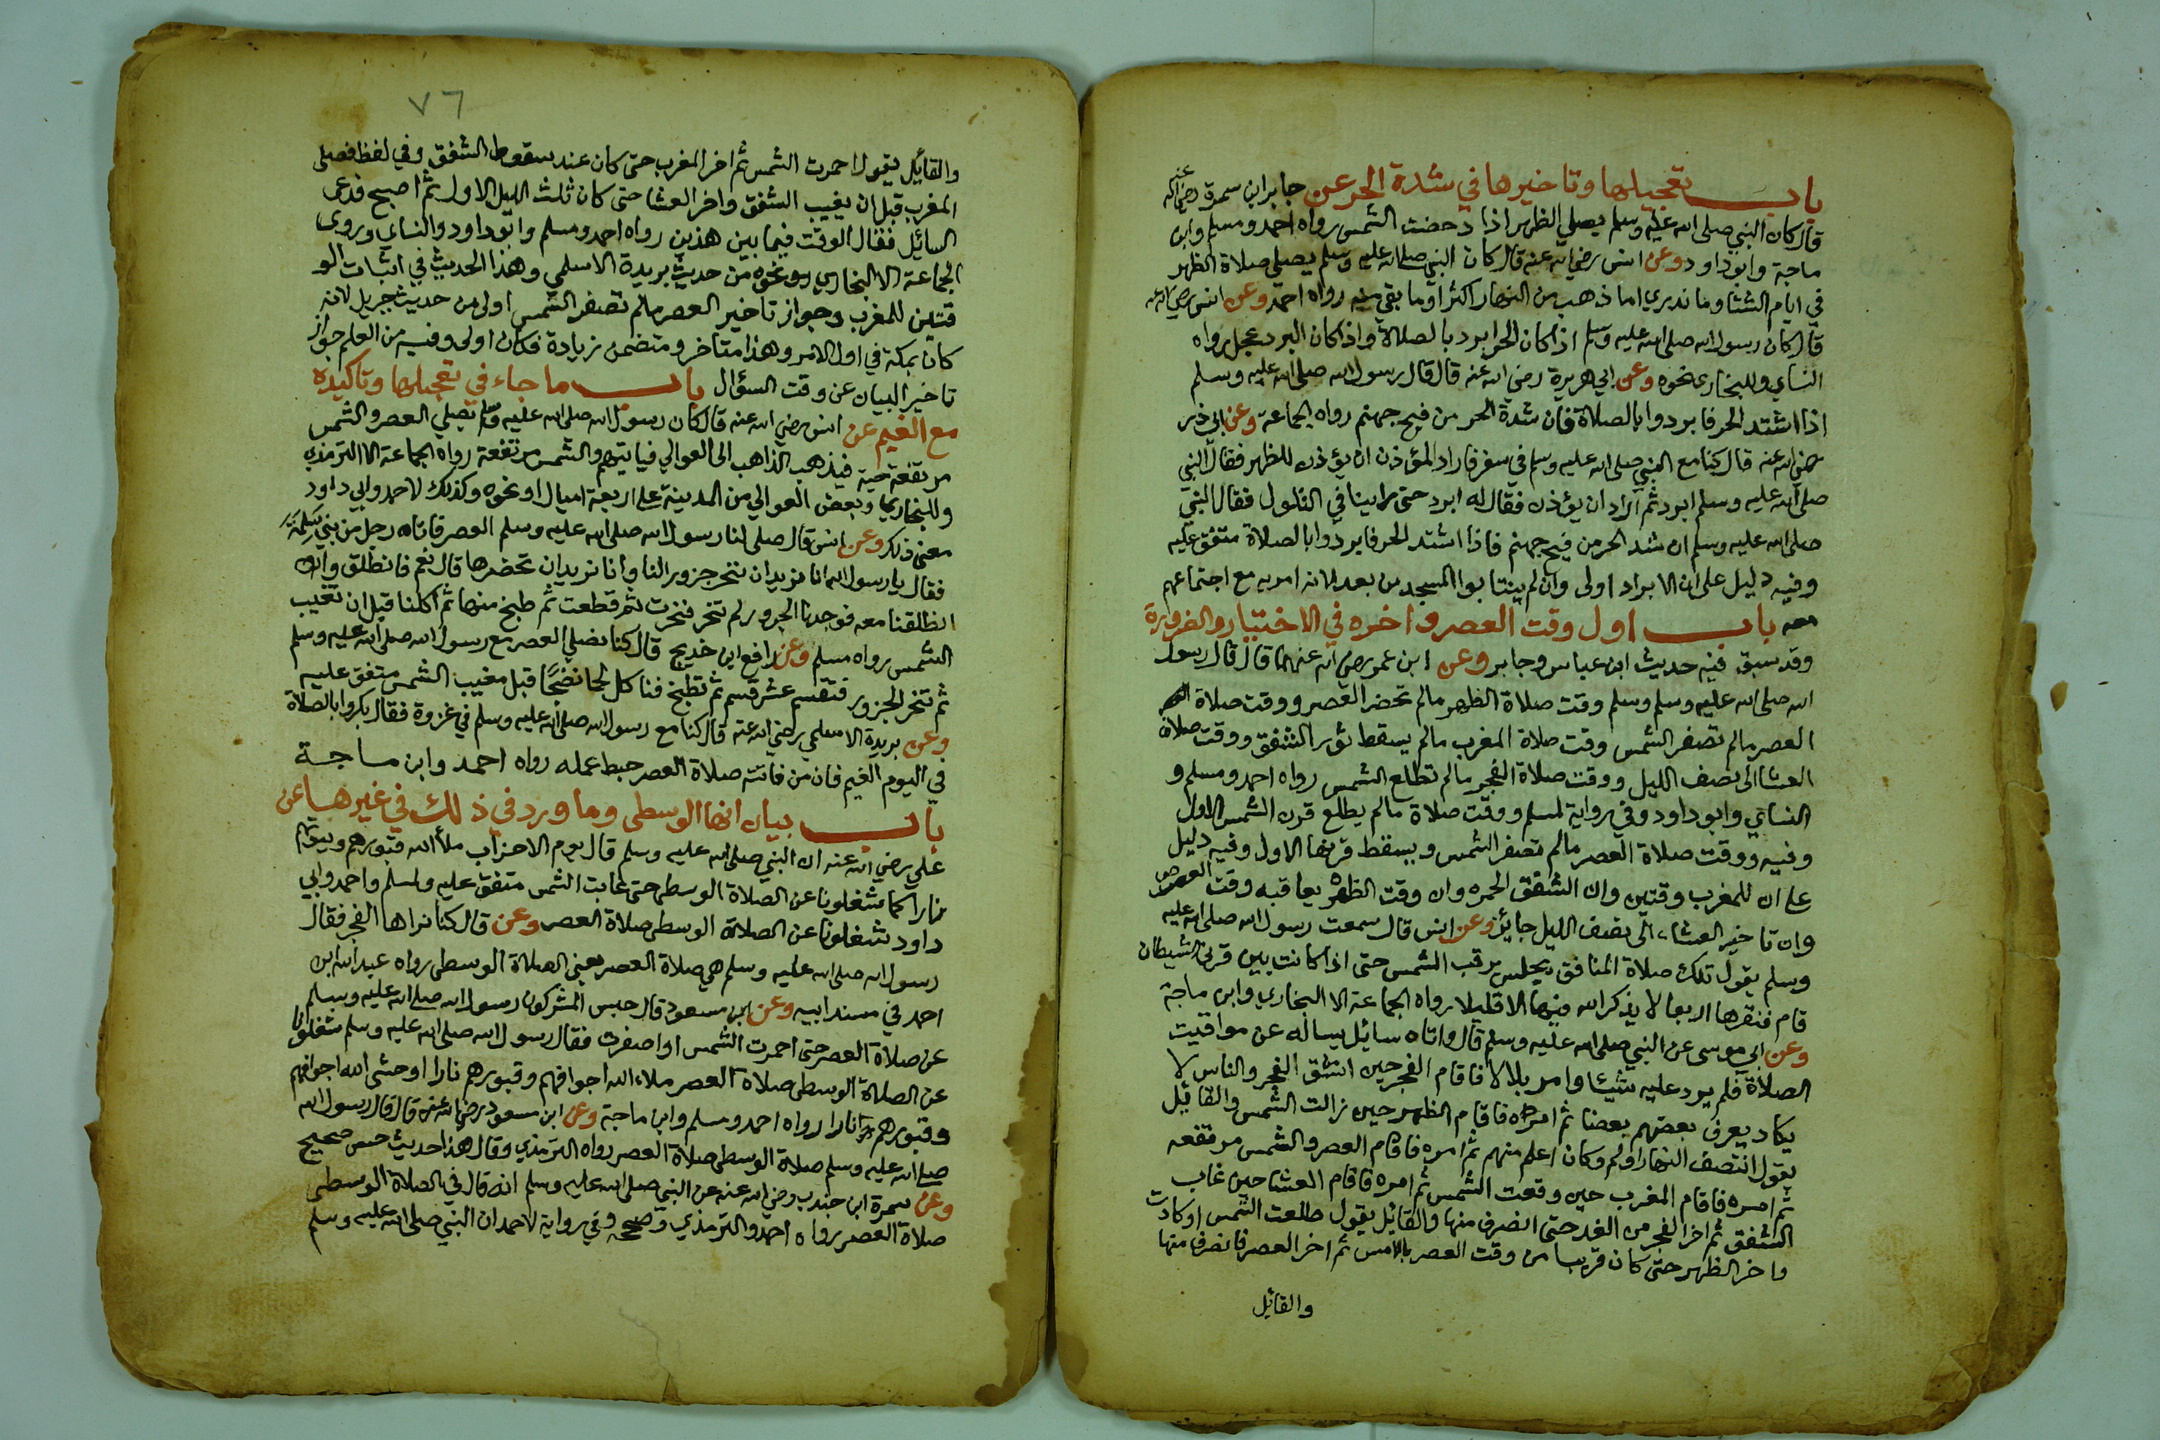 باب تعجيلها وتاخيرها في شدة الحر عن جابر ابن سمرة رضي الله عنه
قال كان النبي صلى الله عليه وسلم يصلي الظهر اذا دحضت الشمس رواه احمد ومسلم وابن
ماجة وابو داود وعن انس رضي الله عنه قال كان النبي صلى الله عليه وسلم يصلي صلاة الظهر
في ايام الشتا وما ندري اما ذهب من النهار اكثر او ما بقي منه رواه احمد وعن انس رضي الله عنه
قال كان رسول الله صلى الله عليه وسلم اذا كان الحر ابرد بالصلاة واذا كان البرد عجل رواه
النساي وللبخاري نحوه وعن ابي هريرة رضي الله عنه قال قال رسول الله صلى الله عليه وسلم
اذا اشتد الحر فابردوا بالصلاة فان شدة الحر من فيح جهنم رواه الجماعة وعن ابي ذر
رضي الله عنه قال كنا مع النبي صلى الله عليه وسلم في سفر فاراد المؤذن ان يؤذن للظهر فقال النبي
صلى الله عليه وسلم ابرد ثم اراد ان يؤذن فقال له ابرد حتى راينا في التلول فقال النبي
صلى الله عليه وسلم ان شد الحر من فيح جهنم فاذا اشتد الحر فابردوا بالصلاة متفق عليه
وفيه دليل على ان الابراد اولى وان لم ينتابوا المسجد من بعد لانه امر به مع اجتماعهم
معه باب اول وقت العصر واخره في الاختيار والضرورة
وقد سبق فيه حديث ابن عباس وجابر وعن ابن عمر رضي الله عنهما قال قال رسول
الله صلى الله عليه وسلم وسلم وقت صلاة الظهر مالم تحضر العصر ووقت صلاة
العصر مالم تصفر الشمس وقت صلاة المغرب مالم يسقط ثور الشفق ووقت صلاة
العشا الى نصف الليل ووقت صلاة الفجر مالم تطلع الشمس رواه احمد ومسلم و
النساي وابو داود وفي رواية لمسلم ووقت صلاة مالم يطلع قرن الشمس الاول
وفيه ووقت صلاة العصر مالم تصفر الشمس ويسقط قرنها الاول وفيه دليل
على ان للمغرب وقتين وان الشفق الحمره وان وقت الظهر يعاقبه وقت العصر
وان تاخير العشاء الى نصف الليل جايز وعن انس قال سمعت رسول الله صلى الله عليه
وسلم يقول تلك صلاة المنافق يجلس يرقب الشمس حتى اذا كانت بين قرني الشيطان
قام فنقرها اربعا لا يذكر الله فيها الا قليلا رواه الجماعة الا البخاري وابن ماجة
وعن ابي موسى عن النبي صلى الله عليه وسلم قال واتاه سائل يساله عن مواقيت
الصلاة فلم يرد عليه شيئا وامر بلالا فاقام الفجر حين انشق الفجر والناس لا
يكاد يعرف بعضهم بعضا ثم امره فاقام الظهر حين زالت الشمس والقائل
يقول انتصف النهار اولم وكان اعلم منهم ثم امره فاقام العصر والشمس مرتفعه
ثم امره فاقام المغرب حين وقعت الشمس ثم امره فاقام العشا حين غاب
الشفق ثم اخر الفجر من الغد حتى انصرف منها والقائل يقول طلعت الشمس او كادت
واخر الظهر حتى كان قريبا من وقت العصر بالامس ثم اخر العصر فانصرف منها
والقائل
٧٦
والقائل يقول احمرت الشمس ثم اخر المغرب حتى كان عند سقوط الشفق وفي لفظ فصلى
المغرب قبل ان يغيب الشفق واخر العشا حتى كان ثلث الليل الاول ثم اصبح فدعى
السائل فقال الوقت فيما بين هذين رواه احمد ومسلم وابو داود والنساي وروى
الجماعة الا البخاري نحوه من حديث بريدة الاسلمي وهذا الحديث في اثبات الو
قتين للمغرب وجواز تاخير العصر مالم تصفر الشمس اولى من حديث جبريل لانه
كان بمكة في اول الامر وهذا متاخر ومتضمن زيادة فكان اولى وفيه من العلم جواز
تاخير البيان عن وقت السؤال باب ما جاء في تعجيلها وتاكيده
مع الغيم عن انس رضي الله عنه قال كان رسول الله صلى الله عليه وسلم يصلي العصر والشمس
مرتفعة حية فيذهب الذاهب الى العوالي فياتيهم والشمس مرتفعة رواه الجماعة الا الترمذي
وللبخاري وبعض العوالي من المدينة على اربعة اميال او نحوه وكذلك لاحمد وابي داود
معنى ذلك وعن انس قال صلى لنا رسول الله صلى الله عليه وسلم العصر فاتاه رجل من بني سلمة
فقال يا رسول الله انا نريد ان ننحر جزور النا وانا نريد ان تحضرها قال نعم فانطلق وان
انطلقنا معه فوجدنا الجزور لم تنحر فنحرت ثم قطعت ثم طبخ منها ثم اكلنا قبل ان تغيب
الشمس رواه مسلم وعن رافع ابن خديج قال كنا نصلي العصر مع رسول الله صلى الله عليه وسلم
ثم تنحر الجزور فتقسم عشر قسم ثم تطبخ فناكل لحما نضجا قبل مغيب الشمس متفق عليه
وعن بريدة الاسلمي رضي الله عنه قال كنا مع رسول الله صلى الله عليه وسلم في غزوة فقال بكروا بالصلاة
في اليوم الغيم فان من فاتته صلاة العصر حبط عمله رواه احمد وابن ماجة
باب بيان انها الوسطى وما ورد في ذلك في غيرها عن
علي رضي الله عنه ان النبي صلى الله عليه وسلم قال يوم الاحزاب ملأ الله قبورهم وبيوتهم
نارا كما شغلونا عن الصلاة الوسطى حتى غابت الشمس متفق عليه ولمسلم واحمد وابي
داود شغلونا عن الصلاة الوسطى صلاة العصر وعن قال كنا نراها الفجر فقال
رسول الله صلى الله عليه وسلم هي صلاة العصر يعني الصلاة الوسطى رواه عبد الله ابن
احمد في مسند ابيه وعن ابن مسعود قال حبس المشركون رسول الله صلى الله عليه وسلم
عن صلاة العصر حتى احمرت الشمس او اصفرت فقال رسول الله صلى الله عليه وسلم شغلونا
عن الصلاة الوسطى صلاة العصر ملاء الله اجوافهم وقبورهم نارا او حشى الله اجوافهم
وقبورهم نارا رواه احمد ومسلم وابن ماجة وعن ابن مسعود رضي الله عنه قال قال رسول الله
صلى الله عليه وسلم صلاة الوسطى صلاة العصر رواه الترمذي وقال هذا حديث حسن صحيح
وعن سمرة ابن جندب رضي الله عنه عن النبي صلى الله عليه وسلم انه قال في الصلاة الوسطى
صلاة العصر رواه احمد والترمذي وصححه وفي رواية لاحمد ان النبي صلى الله عليه وسلم